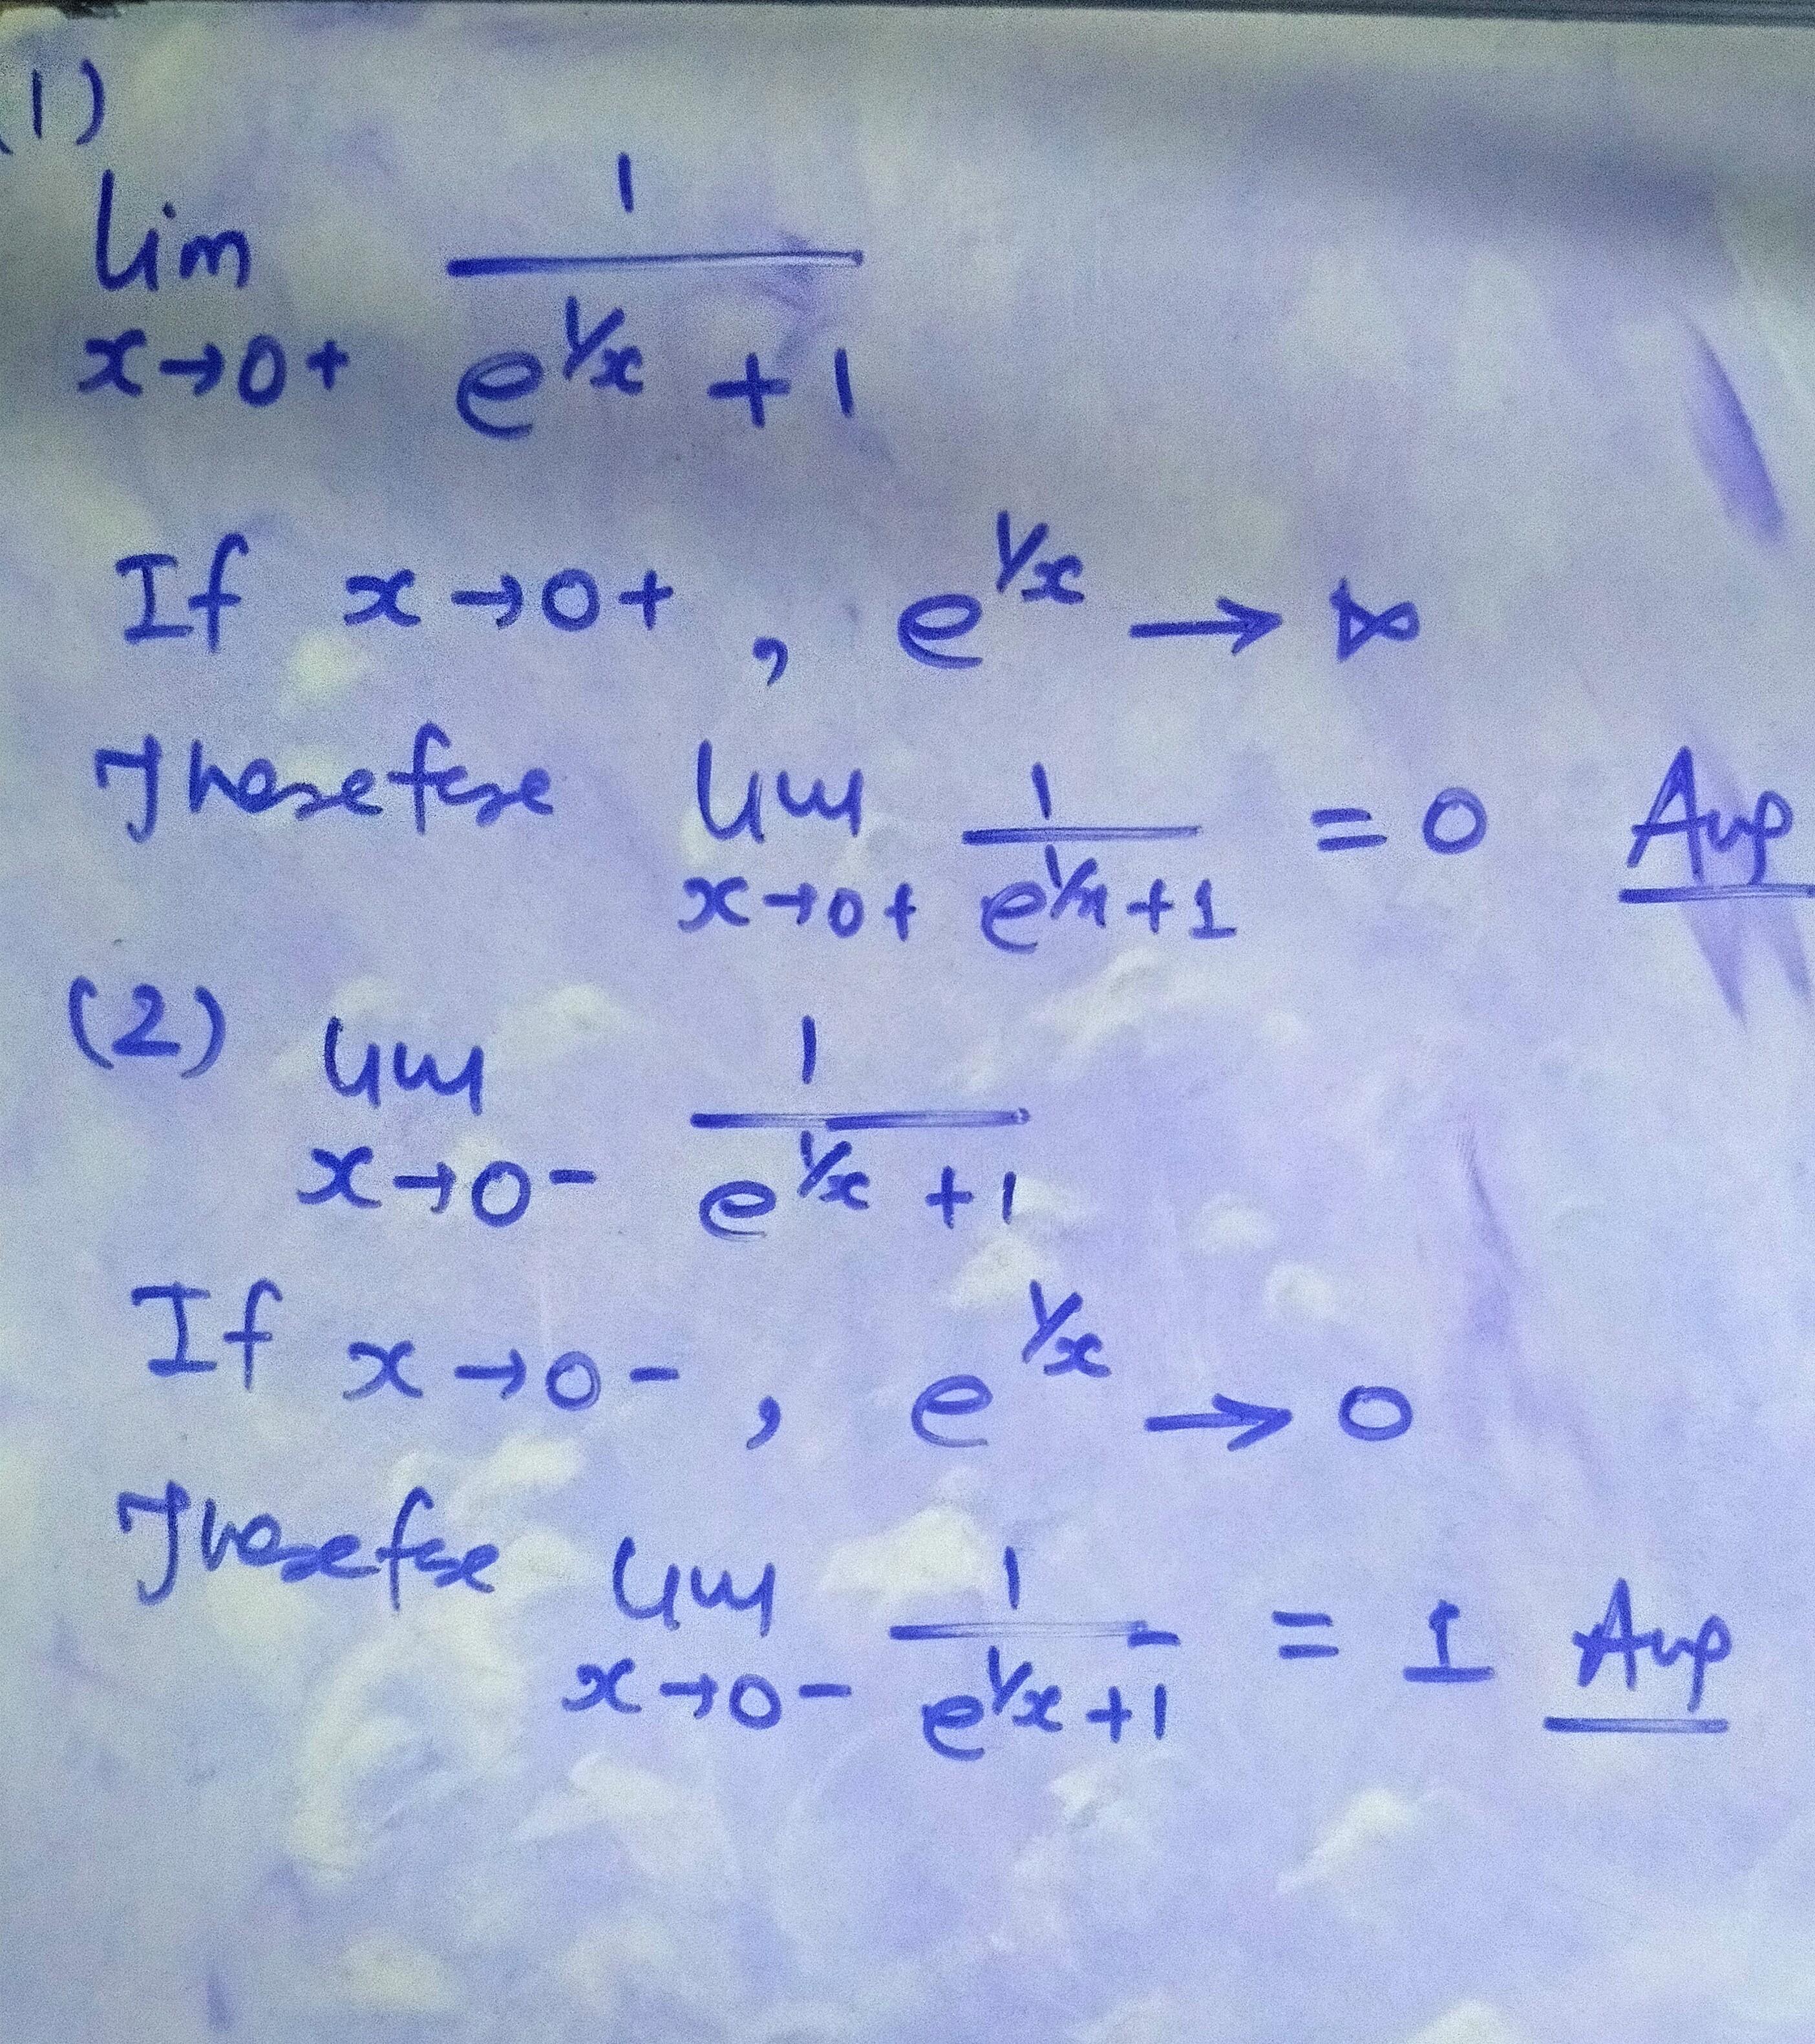 (1)
lim 1/(e^(1/x) + 1)
x→0+
If x→0+ , e^(1/x) → ∞
Therefore lim 1/(e^(1/x)+1) = 0 Ans
x→0+
(2) lim 1/(e^(1/x) +1)
x→0-
If x→0- , e^(1/x) → 0
Therefore lim 1/(e^(1/x)+1) = 1 Ans
x→0-